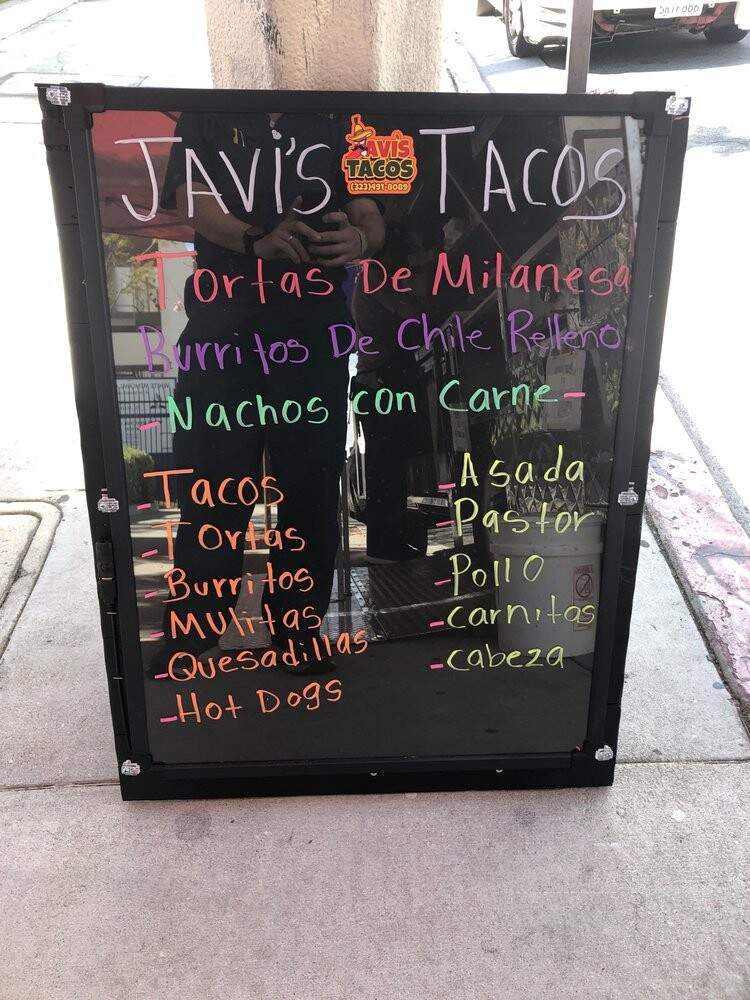 JAVi'S TACOS
JAVI'S
TACOS
(323)491-8089
Tortas De Milanesa
Burritos De Chile Relleno
-Nachos con Carne-
-Tacos
-Tortas
-Burritos
-MUlitas
-Quesadillas
-Hot Dogs
-Asada
-Pastor
-Pollo
-carnitas
-cabeza